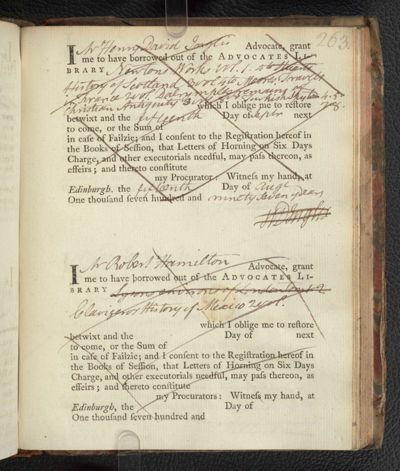 263.
I Mr Henry David Inglis Advocate, grant
me to have borrowed out of the ADVOCATES LI-
BRARY Newtons Works vol. 1.
History of Scotland Moores Travels
in France 2 vol. Dalrymples remains of
Christian Antiquity 3. which I oblige me to restore
betwixt and the fifteenth Day of Septr next
to come, or the Sum of
in case of Failzie; and I consent to the Registration hereof in
the Books of Session, that Letters of Horning on Six Days
Charge, and other executorials needful, may pass thereon, as
effeirs; and thereto constitute
my Procurator: Witness my hand, at
Edinburgh, the fifteenth Day of Augt
One thousand seven hundred and ninety seven years
HD Inglis
I Mr Robert Hamilton Advocate, grant
me to have borrowed out of the ADVOCATES LI-
BRARY Lysons environs of London vol. 2
Clavigeros History of Mexico 2 vol.
which I oblige me to restore
betwixt and the Day of next
to come, or the Sum of
in case of Failzie; and I consent to the Registration hereof in
the Books of Session, that Letters of Horning on Six Days
Charge, and other executorials needful, may pass thereon, as
effeirs; and thereto constitute
my Procurators: Witness my hand, at
Edinburgh, the Day of
One thousand seven hundred and